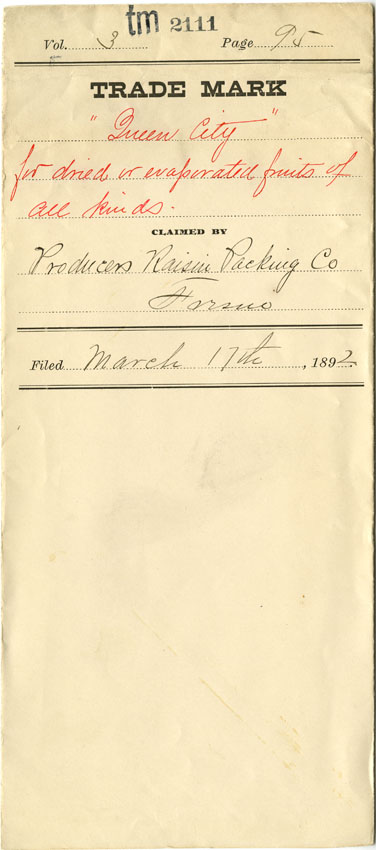 tm 2111
Vol. 3 Page 95
TRADE MARK
"Queen City"
for dried or evaporated fruits of
all kinds.
CLAIMED BY
Producers Raisin Packing Co
Fresno
Filed March 17th, 1892.